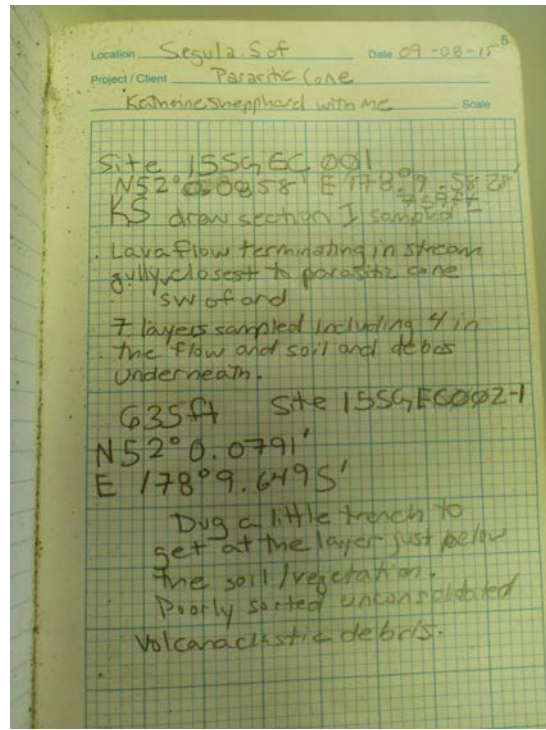 5
Location Segula. S of Date 09-08-15
Project / Client Parasitic Cone
Katherine Shepphard with me Scale
Site 15SGEC001
N52°0.0858' E 178°9.5828'
759ft
KS draw section I sampled
Lava flow terminating in stream
gully, closest to parasitic cone
SW of and
7 layers sampled including 4 in
the flow and soil and debos
underneath.
635ft Site 15SGEC002-1
N52°0.0791'
E 178°9.6495'
Dug a little trench to
get at the layer just below
the soil/vegetation.
Poorly sorted unconsolidated
Volcanaclastic debris.